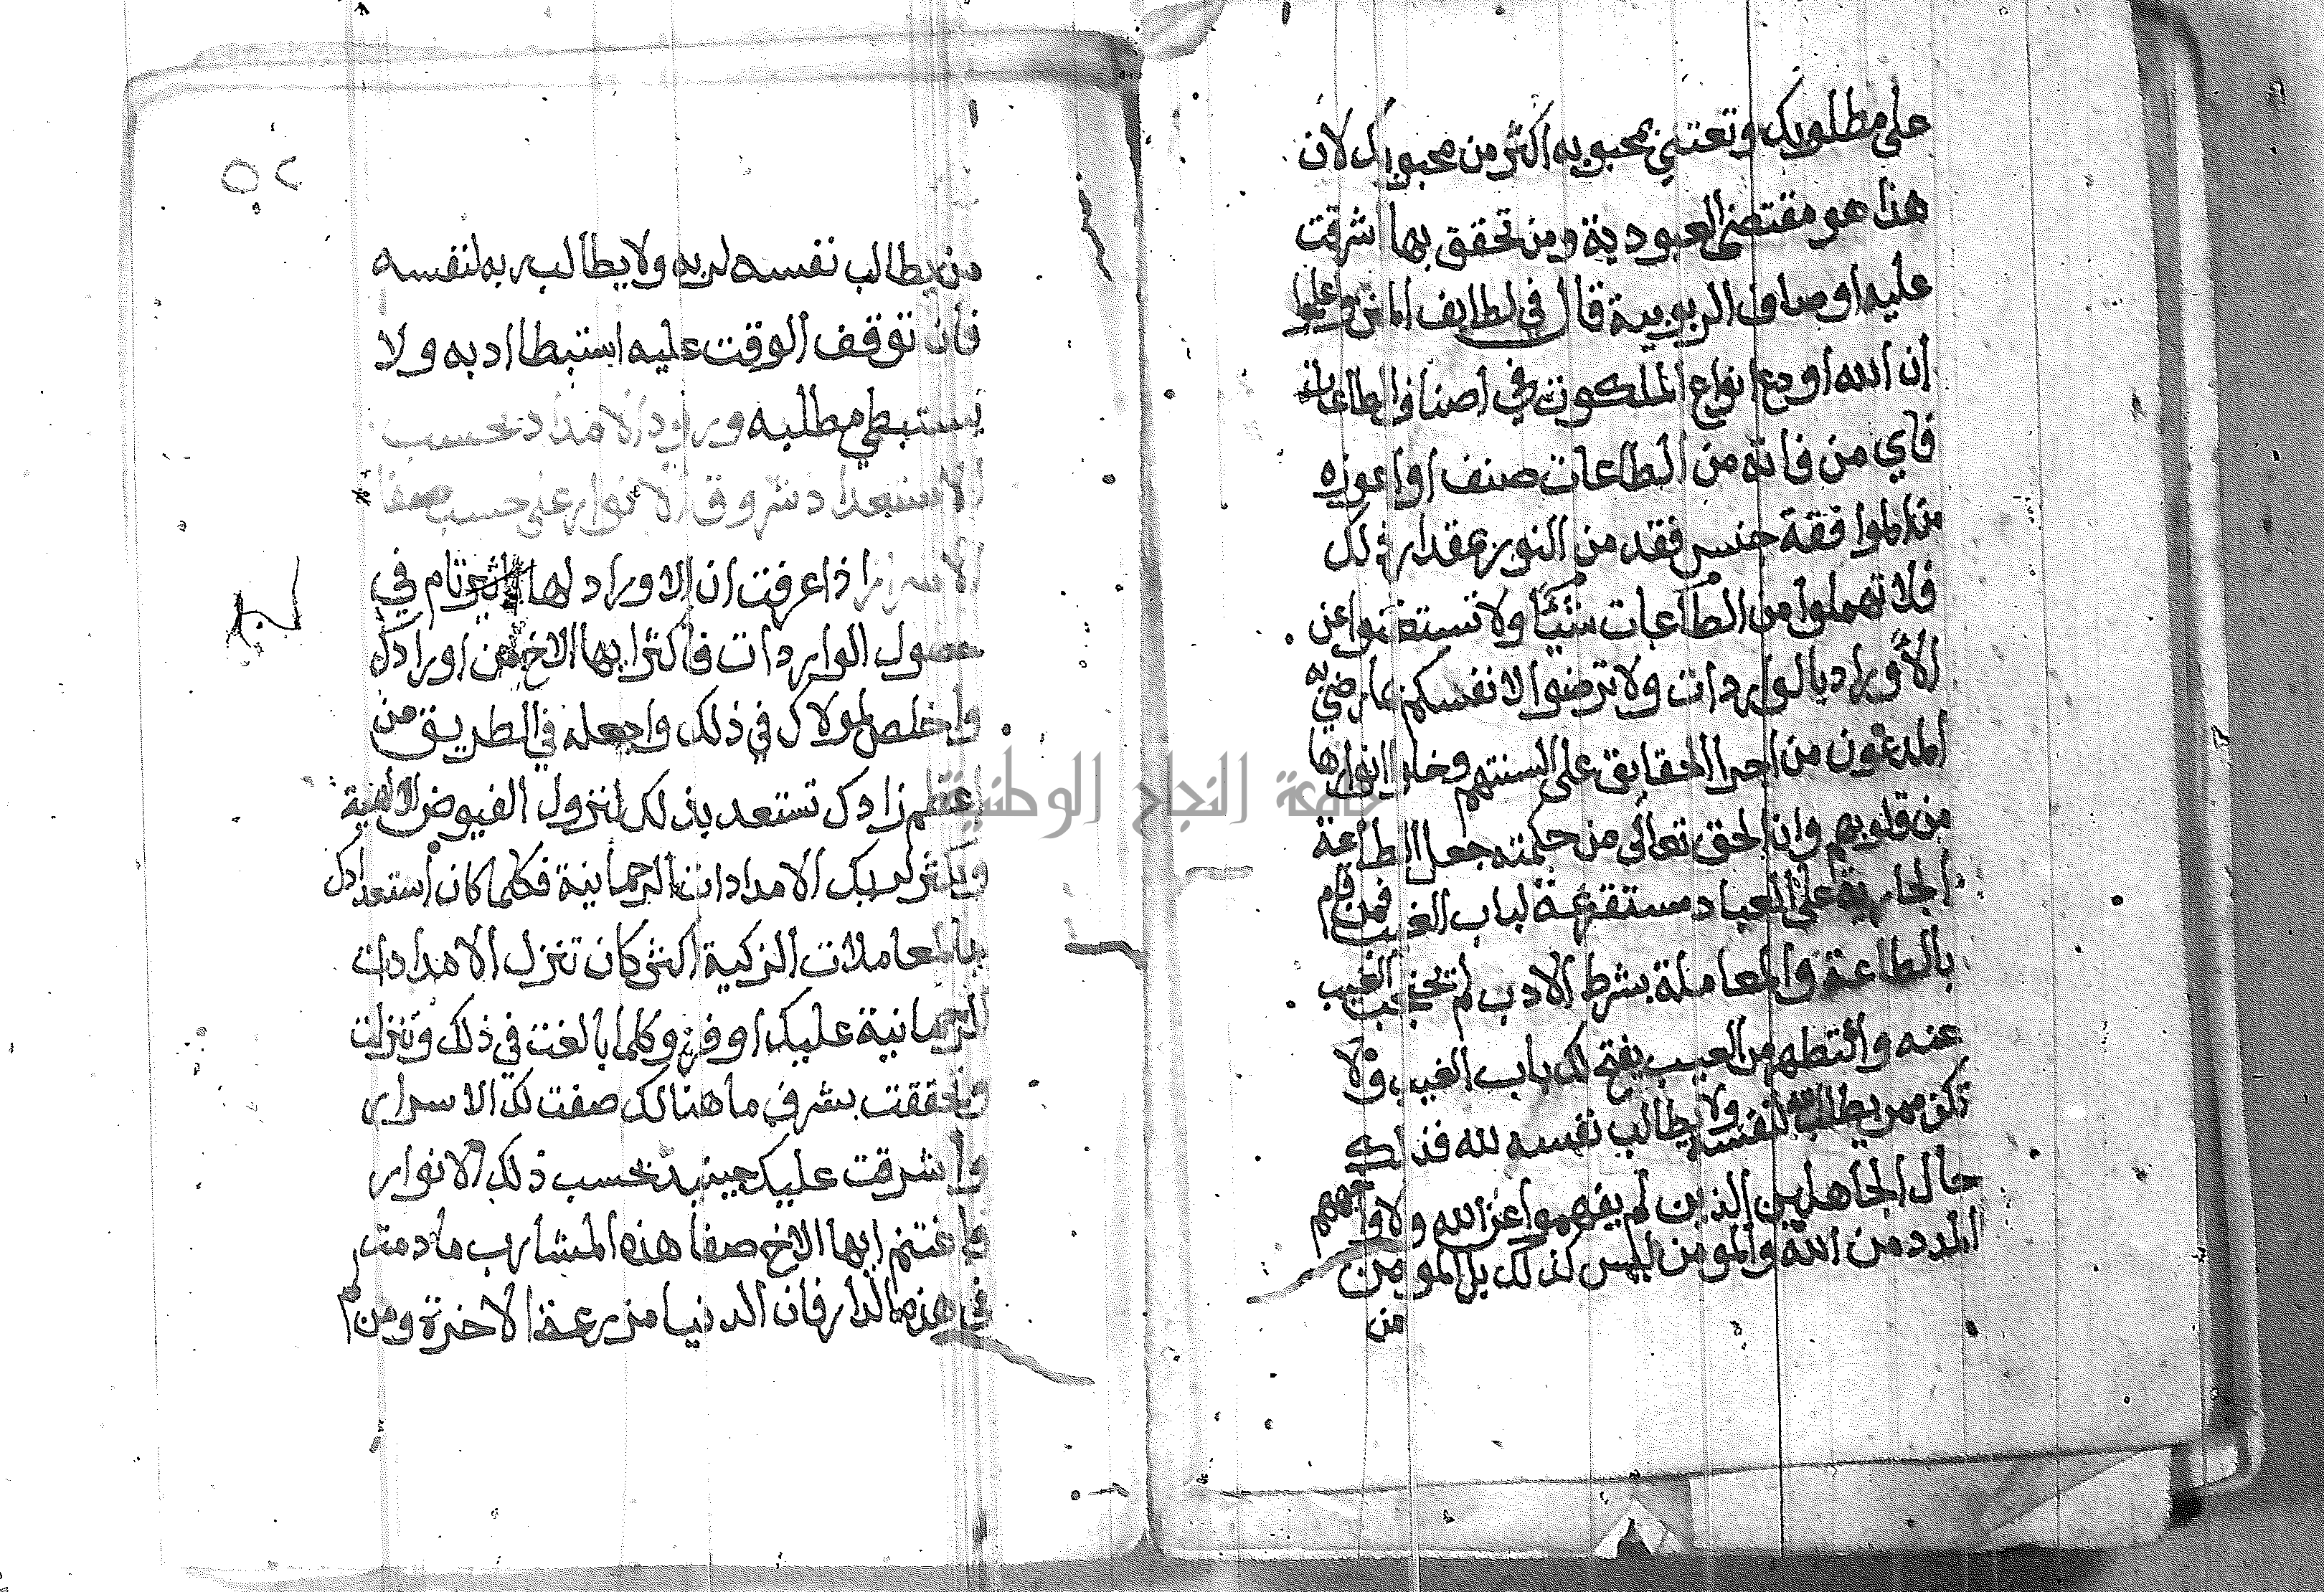 على مطلوبك وتعتني بمحبوبه اكثر من محبوبك لان
هذا هو مقتضى العبودية ومن تحقق بها اشرقت
عليه اوصاف الربوبية قال في لطايف المنن واعلموا
ان الله اودع انواع الملكوت في اصناف الطاعات
فاي من فاته من الطاعات صنف او اعوزه
من الموافقة جنس فقد من النور بمقدار ذلك
فلا تهملوا من الطاعات شيئا ولا تستغنوا عن
الاوراد بالواردات ولا ترضوا لانفسكم بما رضي به
المدعون من اجرا الحقايق على السنتهم وخلو انوارها
من قلوبهم وان الحق تعالى من حكمته جعل الطاعة
الجارية على العباد مستقرعة لباب الغيب فمن قام
بالطاعة والمعاملة بشرط الادب لم يحتجب الغيب
عنه والتطهر من العيب يفتح لك باب الغيب ولا
تكن ممن يطالب الله لنفسه ولا يطالب نفسه لله فذلك
حال الجاهلين الذين لم يفهموا عن الله ولا واجههم
المدد من الله والمومن ليس كذلك بل المومن
من
٥٢
من يطالب نفسه لربه ولا يطالب ربه لنفسه
فان توقف الوقت عليه استبطا ادبه ولا
يستبطي مطلبه وورود الامداد بحسب
الاستعداد شروق الانوار على حسب صفا
الاسرار اذا عرفت ان الاوراد لها تام في
حصول الواردات فاكثر ايها الاخ من اورادك
واخلص لمولاك في ذلك واجعله في الطريق من
اعظم زادك تستعد بذلك لنزول الفيوض الالهية
ويكثر لربك الامدادات الرحمانية فكلما كان استعدادك
بالمعاملات الزكية اكثر كان تنزل الامدادات
الرحمانية عليك اوفر وكلما بالغت في ذلك وتنزلت
وتحققت بشرف ما هنالك صفت لك الاسرار
واشرقت عليك حينيذ بحسب ذلك الانوار
فاغتنم ايها الاخ صفا هذه المشارب ما دمت
في هذه الدار فان الدنيا مزرعة الاخرة ومن لم
جامعة النجاح الوطنية